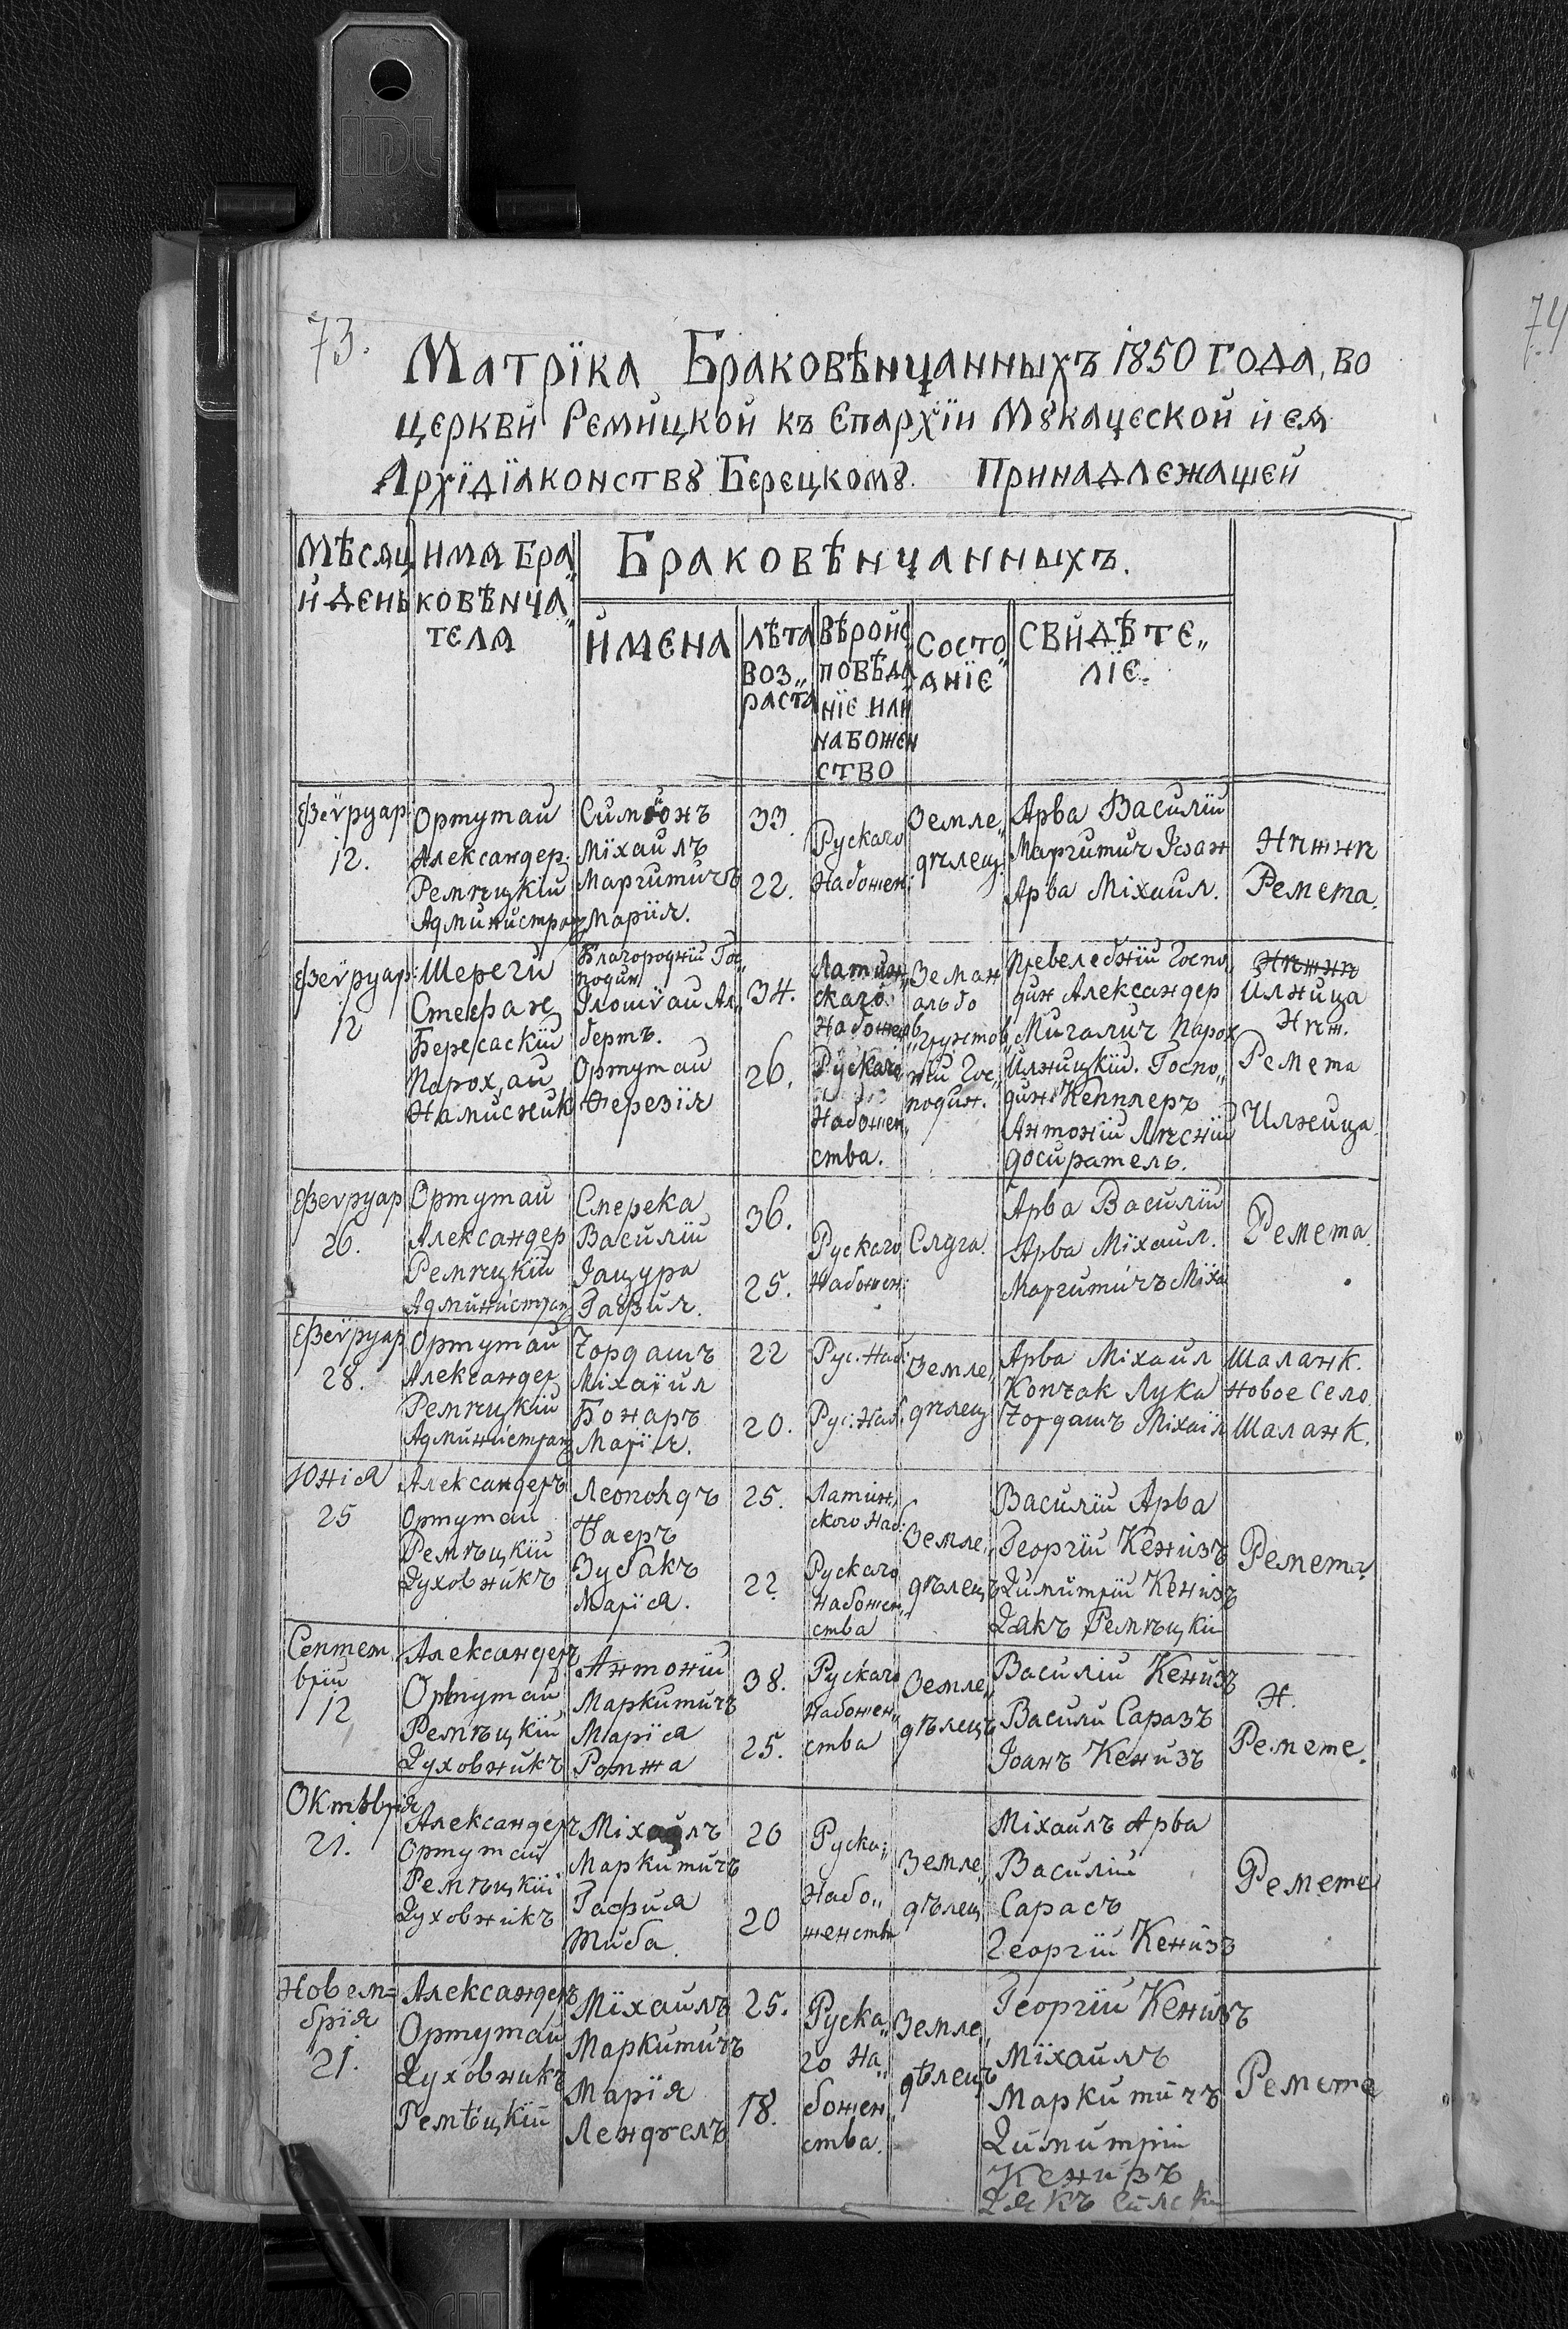 73.
Матрїка Браковѣнчанныхъ 1850 года, во
церкви Ремицкой къ Епархїи Мꙋкаческой и ея
Архїдїаконствꙋ Берецкомꙋ. Принадлежащей
Мѣсяц и день
Имя Бра„
ковѣнча„
теля
Браковѣнчанныхъ.
Имена
лѣта
воз„
раста
Вѣроис
повѣда
нїе или
набожен
ство
Состо„
янїе
Свидѣте„
лїе.
Феѵруар
12.
Ортутай
Александер.
Ремѣцкїй
Администрат
Симїонъ
Мїхаилъ
Маргитичъ
Марїя.
33.
22.
Рускаго
Набожен:
Земле„
дѣлец.
Арва Василїй
Маргитич Іоан
Арва Міхаил.
Нѣжнѣ
Ремета.
Феѵруар:
12
Шереги
Стефан
Берегаскїй
Парох, ай
Намисник
Благороднїй Гос„
подин
Ілошѵаи Ал„
бертъ.
Ортутай
Ѳерезїя
34.
26.
Латин„
скаго
Набожен
Рускаго
Набожен„
ства.
Земан
альбо
Грунтов„
нїй Гос„
подин.
Превелебнїй Госпо„
дин Александер
Мигалич Парох
Илницкїй. Госпо„
дин Кепплеръ
Антонїй Лѣснїй
досиратель.
Нѣжнѣ
Илница
Нѣж.
Ремета
Илница.
Феѵруар
26.
Ортутай
Александер
Ремѣцкїй
Администрат
Смерека
Василїй
Іацура
Гафия.
36.
25.
Рускаго
Набожен:
Слуга.
Арва Василїй
Арва Мїхаил.
Маргитичъ Міха
Ремета.
Феѵруар
28.
Ортутай
Александер
Ремѣцкїй
Администрат
Чордашъ
Міхаїил
Бонаръ
Марїя.
22
20.
Рус. Наб:
Рус. Наб.
Земле„
дѣлец
Арва Міхаил
Копчак Лука
Чордашъ Міхаіл
Шаланк.
Новое Село
Шаланк.
Юнїя
25
Александеръ
Ортутай
Ремѣцкїй
Духовникъ
Леополдъ
Баеръ
Зубакъ
Марїя.
25.
22
Латин„
ского Наб:
Рускаго
набожен„
ства
Земле„
дѣлецъ
Василїй Арва
Георгїй Кенизъ
Димитрїй Кенизъ
Дякъ Ремѣцкїй
Ремета
Септем
врїй
12
Александеръ
Ортутай
Ремѣцкїй
Духовникъ
Антонїй
Маркитичъ
Марїя
Ромжа
38.
25.
Рускаго
Набожен„
ства
Земле„
дѣлецъ
Василїй Кенизъ
Васили Саразъ
Іоанъ Кенизъ
Н.
Ремете.
Октѡврїя
21.
Александеръ
Ортутай
Ремѣцкїй
Духовникъ
Міхаилъ
Маркитичъ
Гафия
Тиба.
20
20
Руска„
Набо„
женства
Земле„
дѣлец
Міхаилъ Арва
Василїй
Сарасъ
Георгїй Кенизъ
Ремете
Новем=
брїя
21.
Александеръ
Ортутай
Духовникъ
Ремѣцкїй
Мїхаилъ
Маркитичъ
Марїя
Лендѣелъ
25.
18.
Руска„
го На„
божен„
ства.
Земле„
дѣлецъ
Георгїй Кенизъ
Мїхаилъ
Маркитичъ
Димитрїй
Кенизъ
Дякъ
Ремете
74